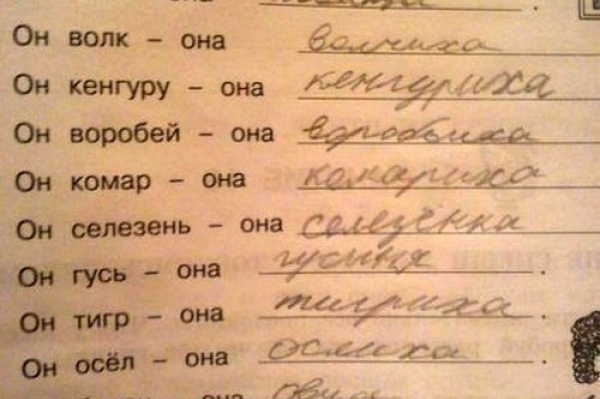 она
Он волк – она волчиха
Он кенгуру – она кенгуриха
Он воробей – она воробьиха
Он комар – она комариха
Он селезень – она селезёнка
Он гусь – она гусиня.
Он тигр – она тигриха.
Он осёл – она ослиха.
она